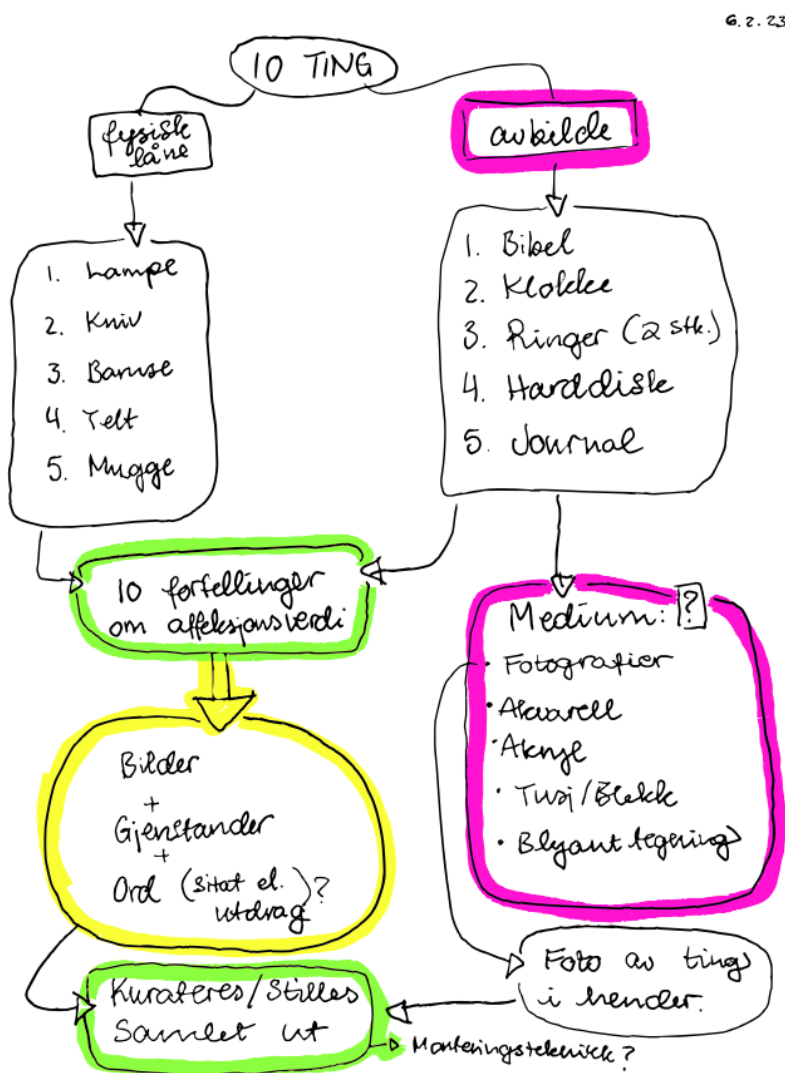 6.2.23
10 TING
fysisk
låne
avbilde
1. Lampe
2. Kniv
3. Bamse
4. Telt
5. Mugge
1. Bibel
2. Klokke
3. Ringer (2 stk.)
4. Harddisk
5. Journal
10 fortellinger
om affeksjonsverdi
Medium: ?
• Fotografier
• Akvarell
• Akryl
• Tusj/Blekk
• Blyant tegning
Bilder
+
Gjenstander
+
Ord (sitat el.
utdrag)?
Foto av ting
i hender.
Kurateres/Stilles
Samlet ut
Monteringsteknikk?